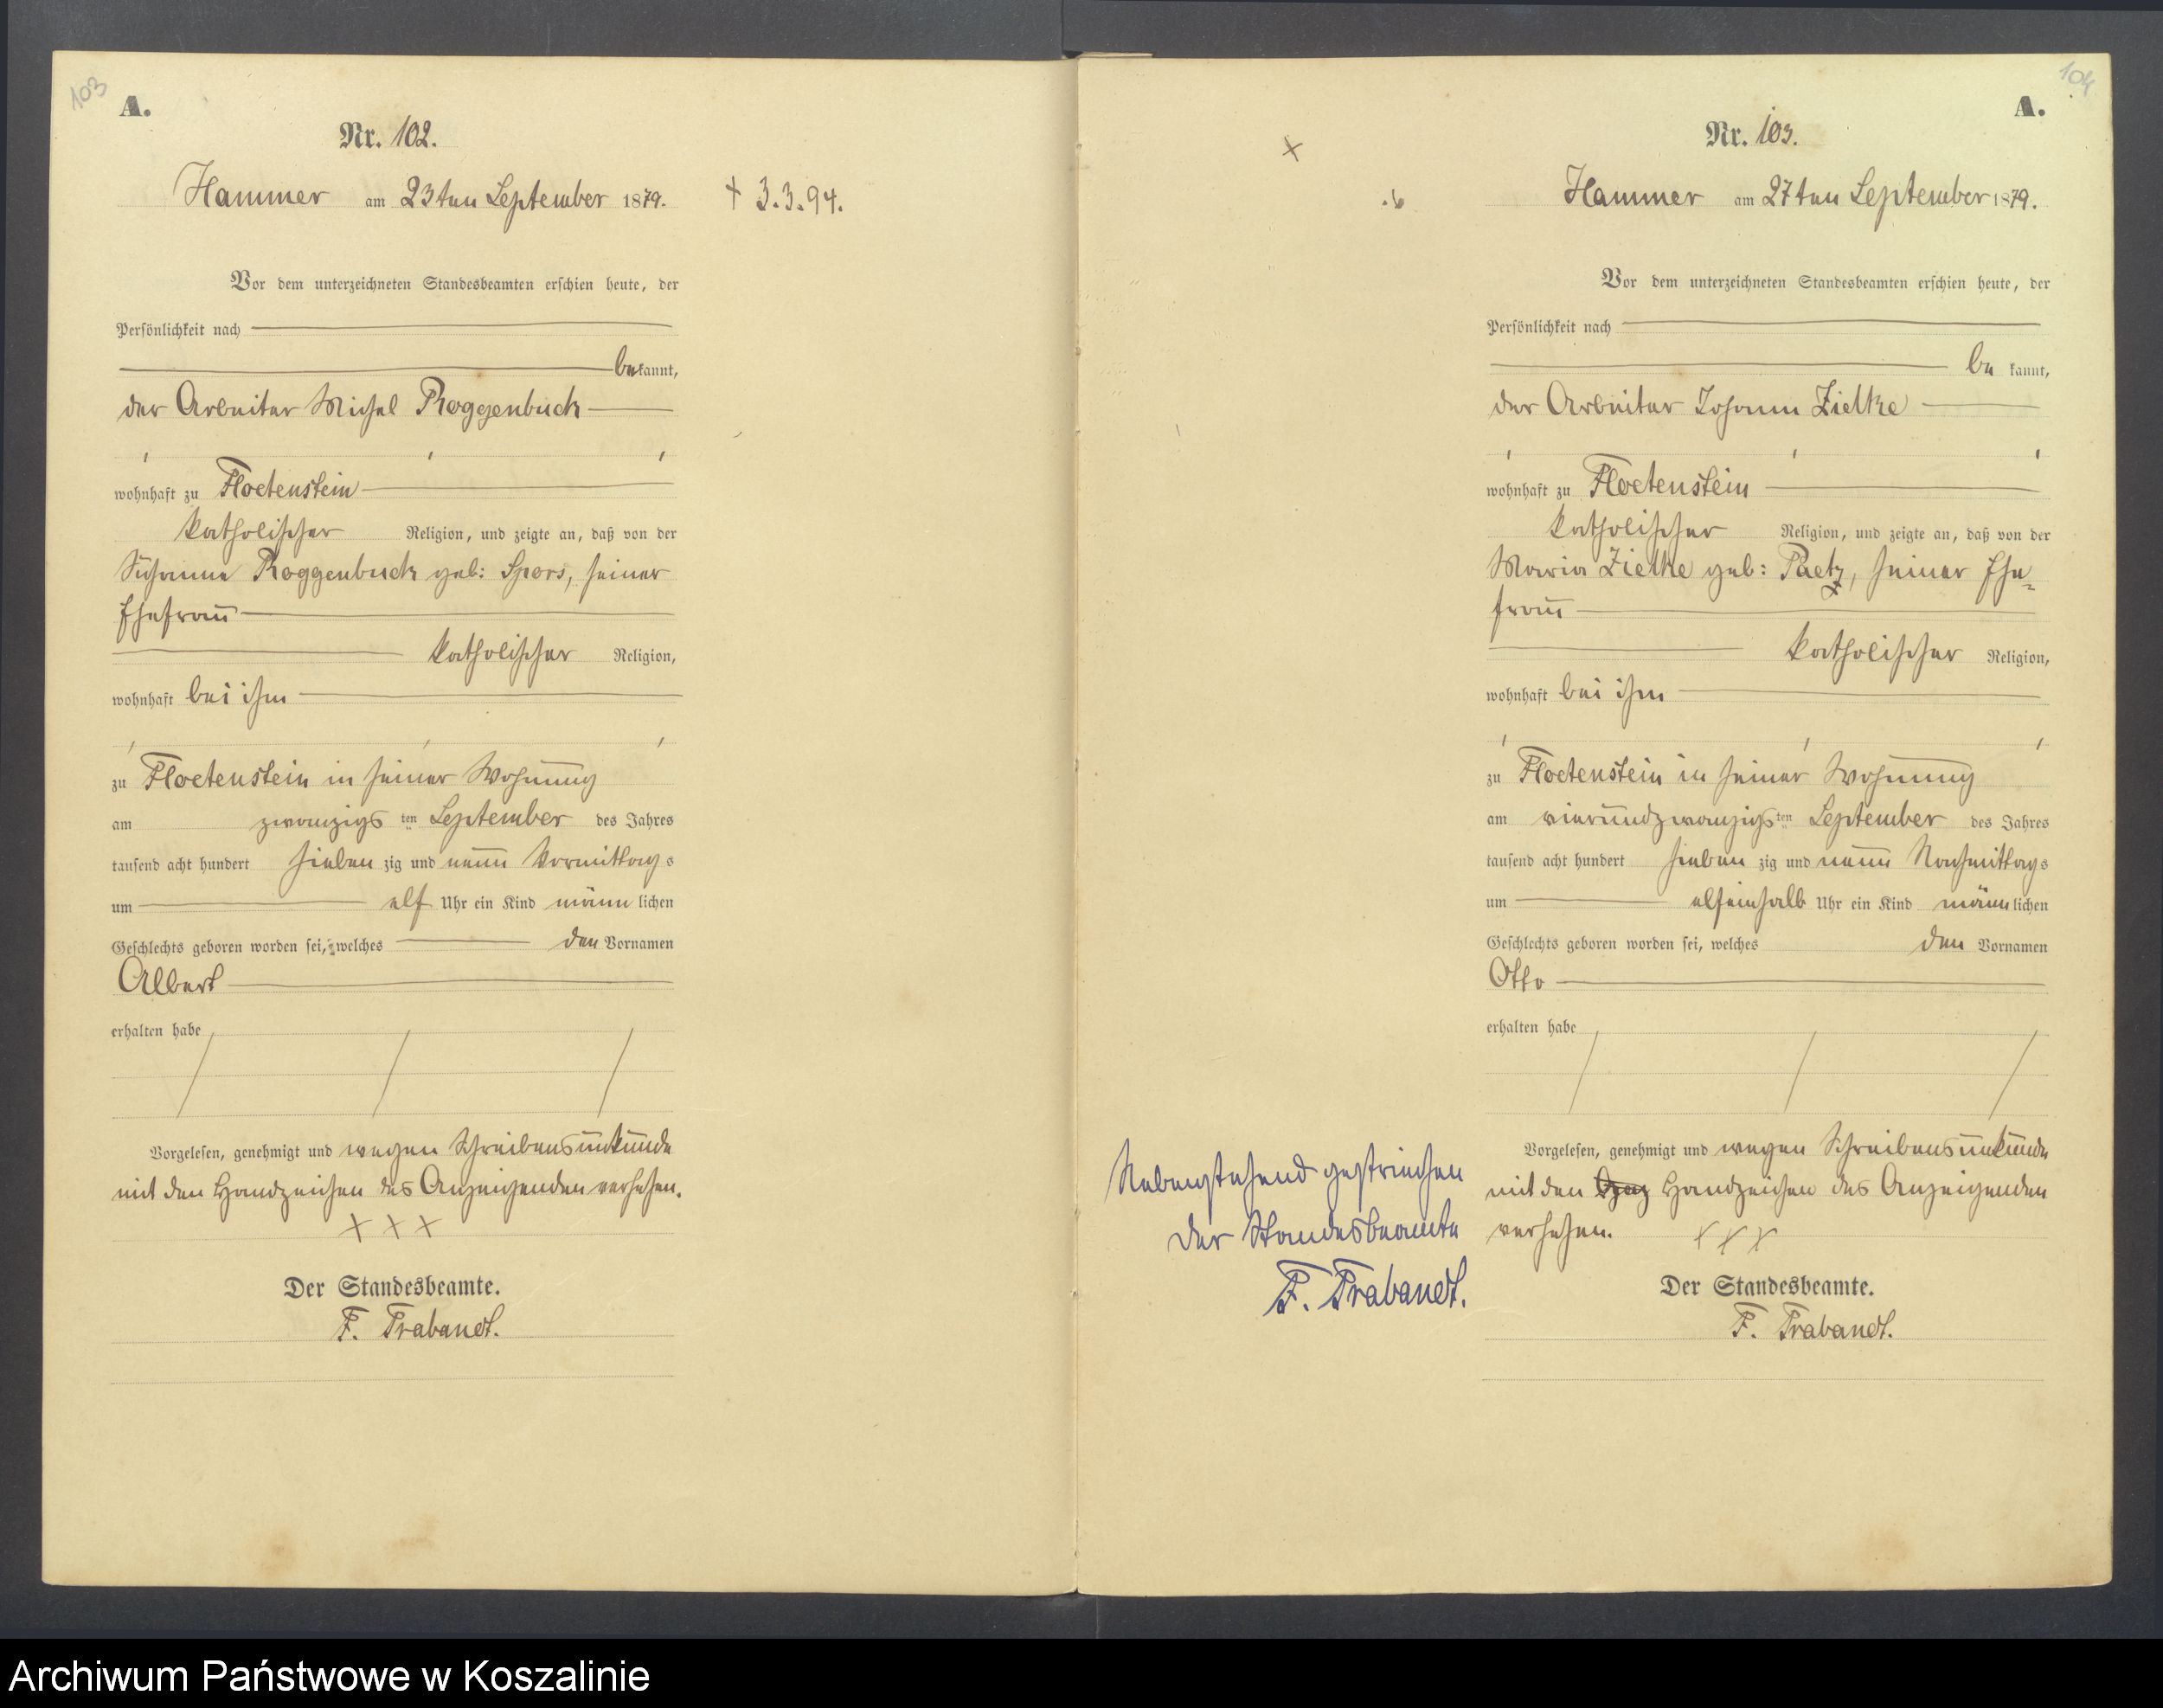 103
A.
Nr. 102.
Hammer am 23ten September 1879.
+ 3.3.94.
Vor dem unterzeichneten Standesbeamten erschien heute, der
Persönlichkeit nach
bekannt,
der Arbeiter Michel Roggenbuck
wohnhaft zu Floetenstein
katholischer Religion, und zeigte an, daß von der
Susanne Roggenbuck geb: Spors, seiner
Ehefrau
katholischer Religion,
wohnhaft bei ihm
zu Floetenstein in seiner Wohnung
am zwanzigsten September des Jahres
tausend acht hundert siebenzig und neun Vormittags
um elf Uhr ein Kind männlichen
Geschlechts geboren worden sei, welches den Vornamen
Albert
erhalten habe
Vorgelesen, genehmigt und wegen Schreibensunkunde
mit den Handzeichen des Anzeigenden versehen.
XXX
Der Standesbeamte.
F. Trabandt.
104
A.
Nr. 103.
Hammer am 27ten September 1879.
Vor dem unterzeichneten Standesbeamten erschien heute, der
Persönlichkeit nach
bekannt,
der Arbeiter Johann Zielke
wohnhaft zu Floetenstein
katholischer Religion, und zeigte an, daß von der
Maria Zielke geb: Paetz, seiner Ehe-
frau
katholischer Religion,
wohnhaft bei ihm
zu Floetenstein in seiner Wohnung
am vierundzwanzigsten September des Jahres
tausend acht hundert siebenzig und neun Nachmittags
um elfeinhalb Uhr ein Kind männlichen
Geschlechts geboren worden sei, welches den Vornamen
Otto
erhalten habe
Vorgelesen, genehmigt und wegen Schreibensunkunde
mit den Handzeichen des Anzeigenden
versehen. XXX
Der Standesbeamte.
F. Trabandt.
Nebenstehend gestrichen
Der Standesbeamte
F. Trabandt.
Archiwum Państwowe w Koszalinie